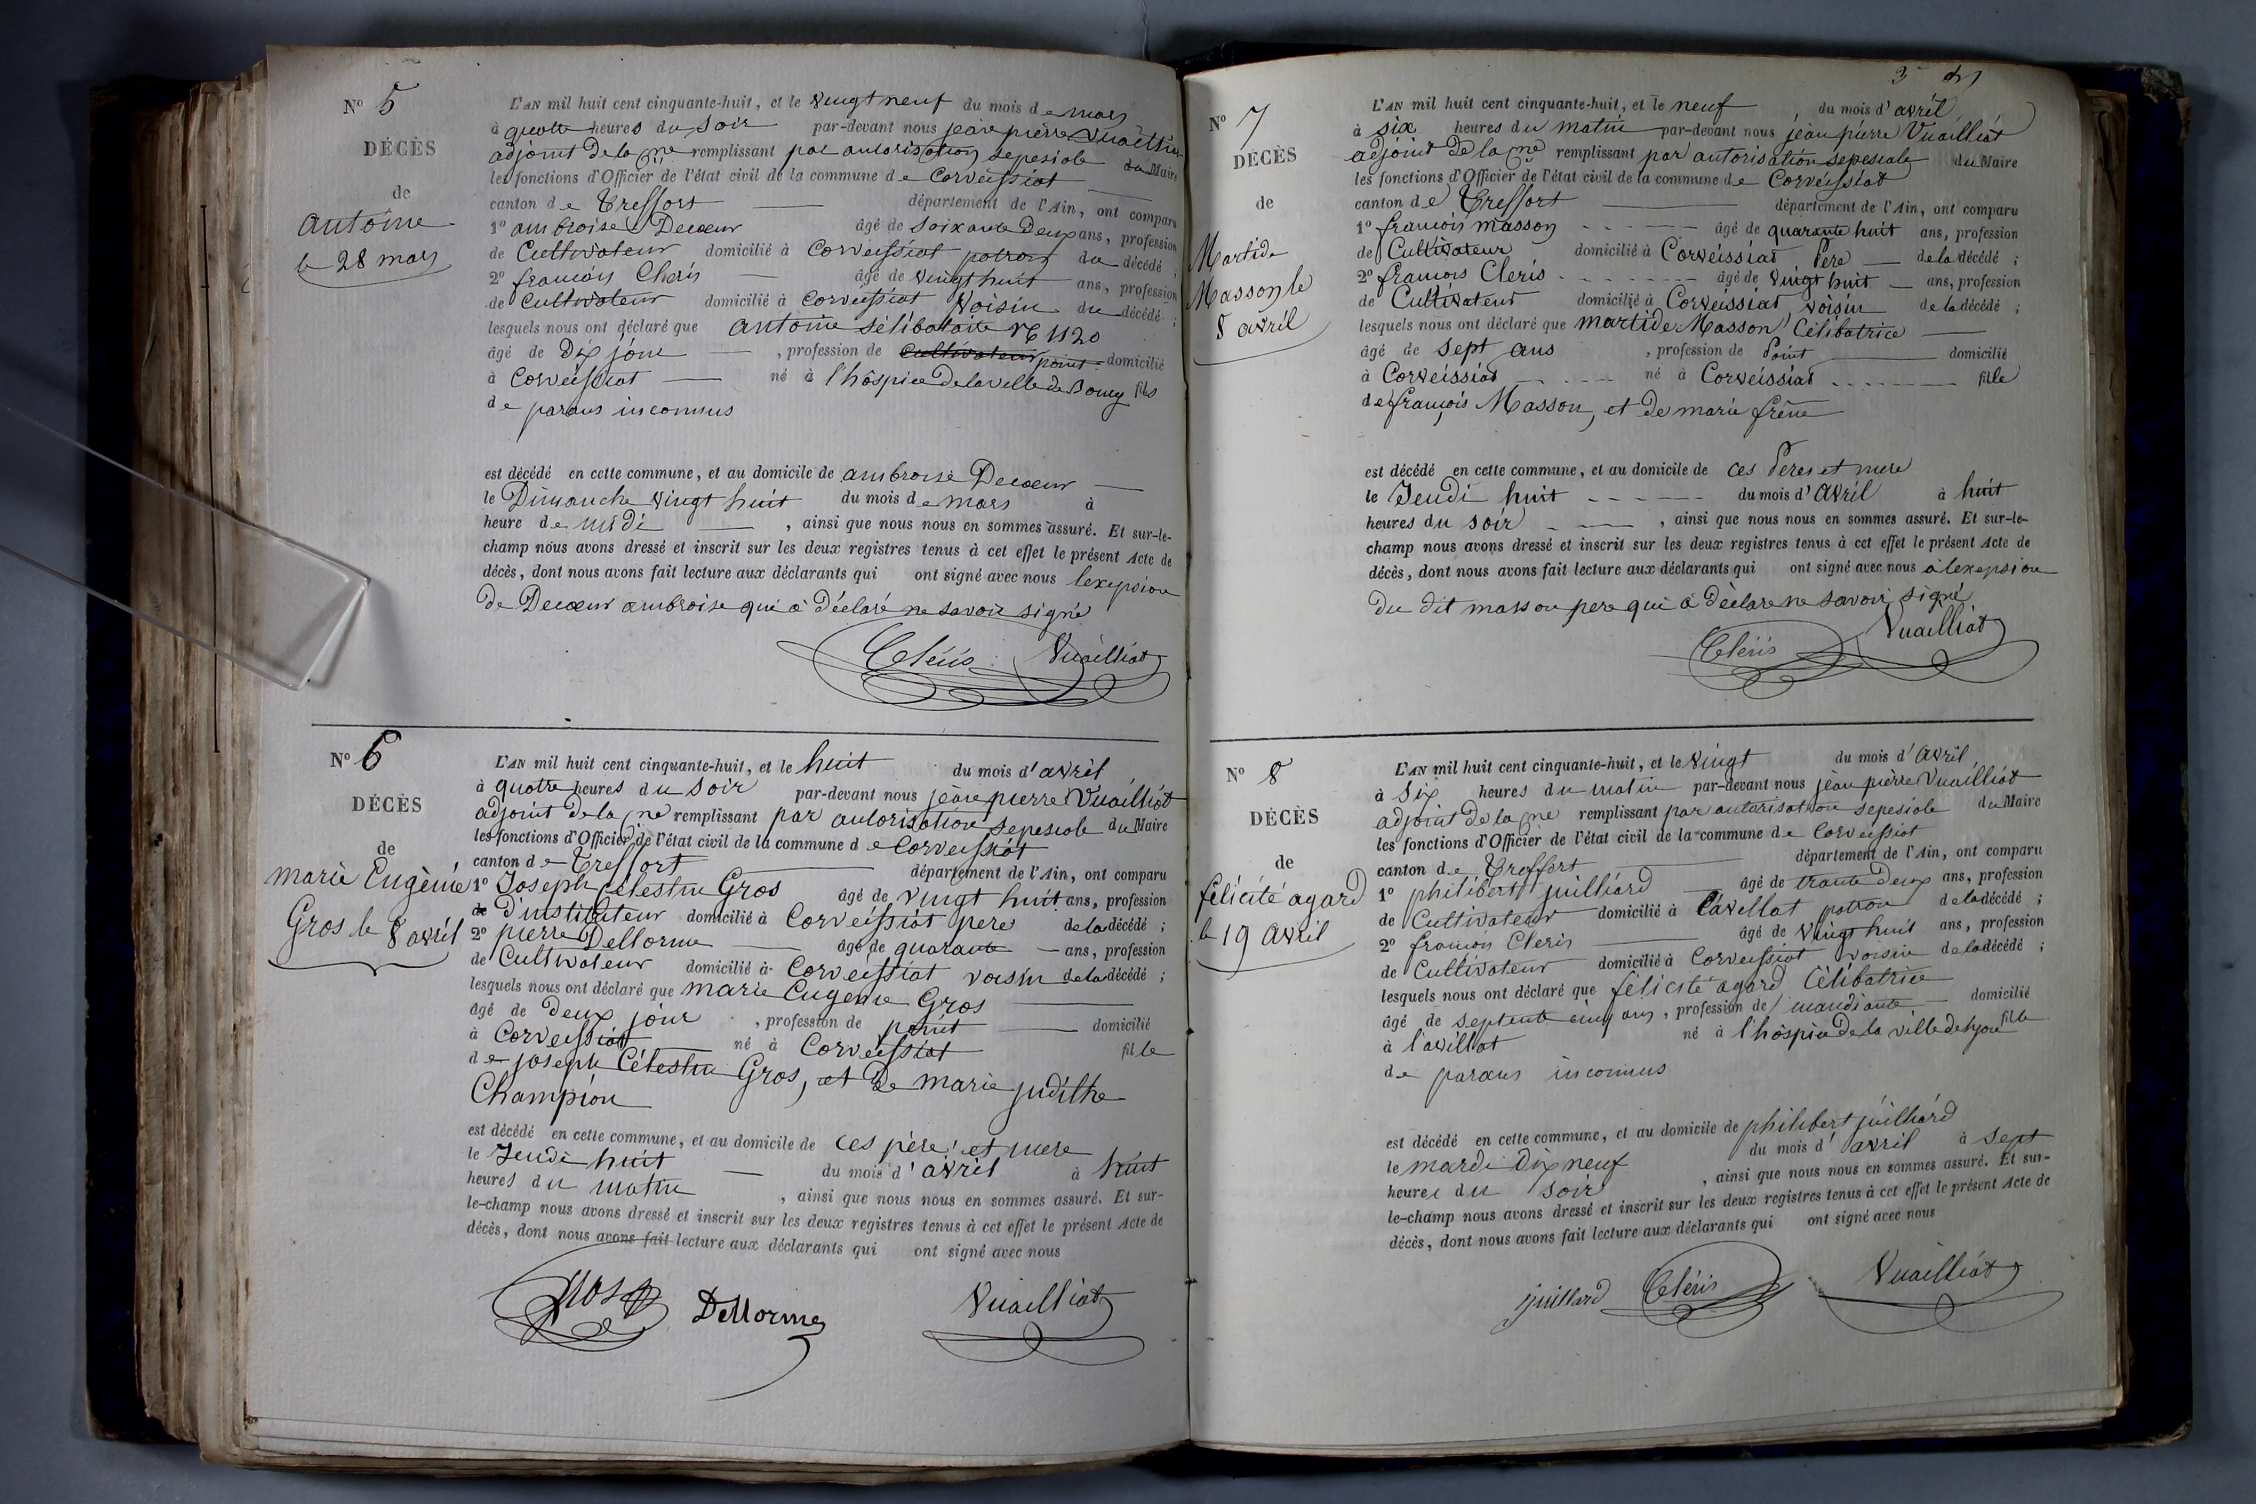 N.º 5
DÉCÈS
de
antoine
le 28 mars
L'AN mil huit cent cinquante-huit, et le vingt neuf du mois de mars
à quatre heures du soir par-devant nous jean pierre Vuailliat
adjoint de la me remplissant par autorisation sepesiale du Maire
les fonctions d'Officier de l'état civil de la commune de Corveissiat
canton de Treffort département de l'Ain, ont comparu
1º ambroise Decœur âgé de soixante Deux ans, profession
de Cultivateur domicilié à Corveissiat patron du décédé ;
2º francois Cleris âgé de vingt huit ans, profession
de Cultivateur domicilié à Corveissiat Voisin du décédé ;
lesquels nous ont déclaré que antoine sélibataire Nº 1120
âgé de Dix jour , profession de cultivateur point domicilié
à Corveissiat né à l'hôspice De la ville de Bourg fils
de parans inconnus
est décédé en cette commune, et au domicile de ambroise Decœur
le Dimanche vingt huit du mois de mars à
heure de midi , ainsi que nous nous en sommes assuré. Et sur-le-
champ nous avons dressé et inscrit sur les deux registres tenus à cet effet le présent Acte de
décès, dont nous avons fait lecture aux déclarants qui ont signé avec nous lexepsion
De Decœur ambroise qui à Déclaré ne savoir signé
Cléris Vuailliat
N.º 6
DÉCÈS
de
marie Eugènie
Gros le 8 avril
L'AN mil huit cent cinquante-huit, et le huit du mois d'avril
à quatre heures du soir par-devant nous jean pierre Vuailliat
adjoint De la me remplissant par autorisation sepesiale du Maire
les fonctions d'Officier de l'état civil de la commune de Corveissiat
canton de Treffort département de l'Ain, ont comparu
1º Joseph Célestin Gros âgé de vingt huit ans, profession
de d'instituteur domicilié à Corveissiat pere de la décédé ;
2º pierre Dellorme âgé de quarante ans, profession
de Cultivateur domicilié à Corveissiat voisin de la décédé ;
lesquels nous ont déclaré que marie Eugenie Gros
âgé de Deux jour , profession de point domicilié
à Corveissiat né à Corveissiat fille
de joseph Célestin Gros, et De marie judithe
Champion
est décédé en cette commune, et au domicile de ces père et mere
le Jeudi huit du mois d'avril à huit
heures du matin , ainsi que nous nous en sommes assuré. Et sur-
le-champ nous avons dressé et inscrit sur les deux registres tenus à cet effet le présent Acte de
décès, dont nous avons fait lecture aux déclarants qui ont signé avec nous
Gros Dellorme Vuailliat
3
N.º 7
DÉCÈS
de
Martide
Masson le
8 avril
L'AN mil huit cent cinquante-huit, et le neuf du mois d'avril
à six heures du matin par-devant nous jean pierre Vuailliat
adjoint De la me remplissant par autorisation sepesiale du Maire
les fonctions d'Officier de l'état civil de la commune de Corveissiat
canton de Treffort département de l'Ain, ont comparu
1º francois masson âgé de quarante huit ans, profession
de Cultivateur domicilié à Corveissiat Pere de la décédé ;
2º francois Cleris âgé de vingt huit ans, profession
de Cultivateur domicilié à Corveissiat voisin de la décédé ;
lesquels nous ont déclaré que martide Masson Célibatrice
âgé de sept ans , profession de Point domicilié
à Corveissiat né à Corveissiat fille
de françois Masson, et De marie frêne
est décédé en cette commune, et au domicile de ces Peres et mere
le Jeudi huit du mois d'avril à huit
heures du soir , ainsi que nous nous en sommes assuré. Et sur-le-
champ nous avons dressé et inscrit sur les deux registres tenus à cet effet le présent Acte de
décès, dont nous avons fait lecture aux déclarants qui ont signé avec nous à lexepsion
Du dit masson pere qui à Déclare ne savoir signé
Cléris Vuailliat
N.º 8
DÉCÈS
de
félicité agard
le 19 avril
L'AN mil huit cent cinquante-huit, et le vingt du mois d'avril
à six heures du matin par-devant nous jean pierre Vuailliat
adjoint De la me remplissant par autorisation sepesiale du Maire
les fonctions d'Officier de l'état civil de la commune de Corveissiat
canton de Treffort département de l'Ain, ont comparu
1º philibert juilliard âgé de trante Deux ans, profession
de Cultivateur domicilié à Cavellat patron de la décédé ;
2º francois Cleris âgé de vingt huit ans, profession
de Cultivateur domicilié à Corveissiat voisin de la décédé ;
lesquels nous ont déclaré que félicité agard Célibatrice
âgé de septente cinq ans , profession de mandiante domicilié
à l'avillat né à l'hôspice De la ville de lyon fille
de parans inconnus
est décédé en cette commune, et au domicile de philibert juilliard
le mardi Dix neuf du mois d'avril à sept
heures du soir , ainsi que nous nous en sommes assuré. Et sur-
le-champ nous avons dressé et inscrit sur les deux registres tenus à cet effet le présent Acte de
décès, dont nous avons fait lecture aux déclarants qui ont signé avec nous
juillard Cléris Vuailliat